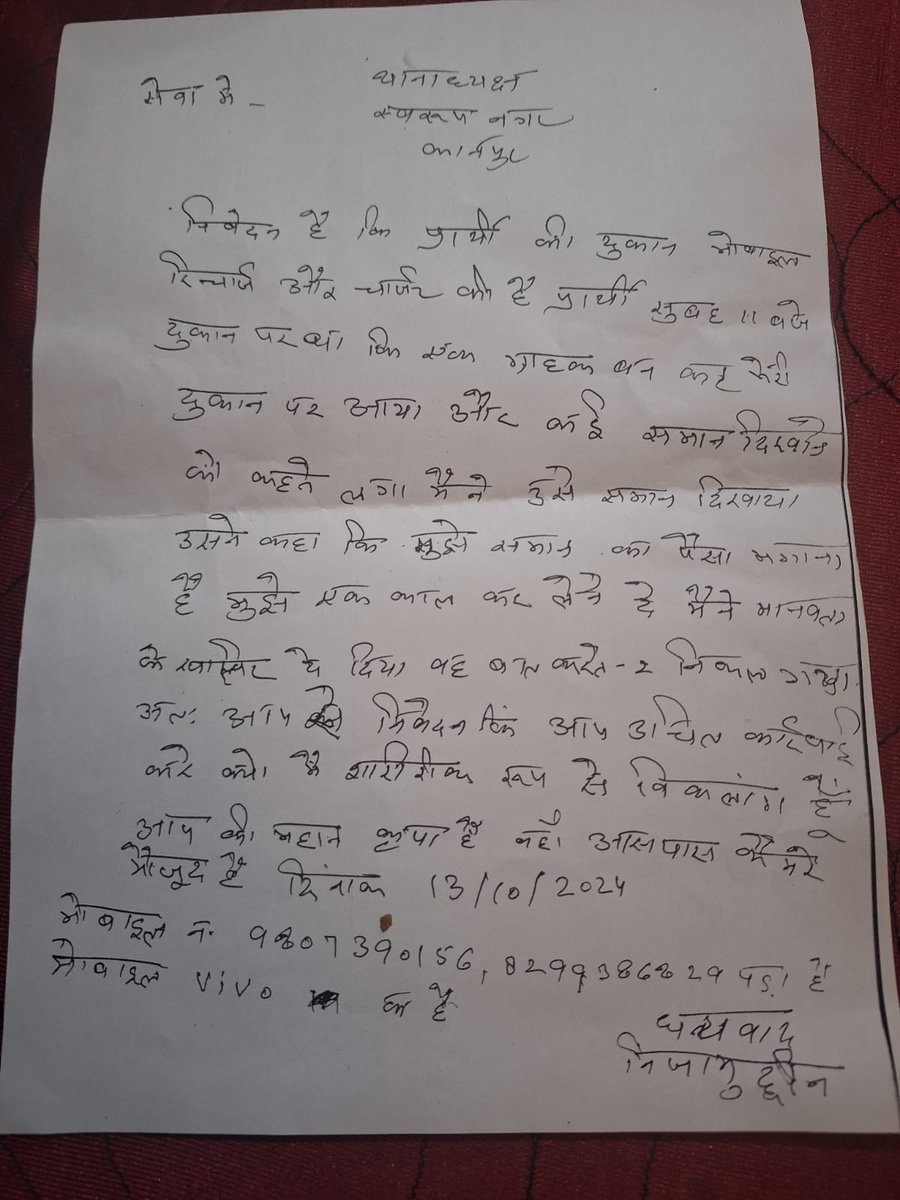 सेवा मे -
थानाध्यक्ष
स्वरूप नगर
कानपुर
निवेदन है कि प्रार्थी की दुकान मोबाइल
रिचार्ज और चार्जर की है प्रार्थी सुबह 11 बजे
दुकान पर था कि एक ग्राहक बन कर मेरी
दुकान पर आया और कई समान दिखाने
को कहने लगा मैने उसे समान दिखाया
उसने कहा कि मुझे समान का पैसा मगाना
है मुझे एक काल कर लेने दे मैने मानवता
के खातिर दे दिया वह बात करते-2 निकल गया
अतः आप से निवेदन कि आप उचित कार्रवाई
करे मै शारीरीक रूप से विकलांग हूँ
आप की महान कृपा है वहाँ आसपास कैमरे
मौजूद है दिनाक 13/10/2024
मोबाइल न. 9807390156, 8299386829 पड़ा है
मोबाइल vivo का है
धन्यवाद
निजामुद्दीन